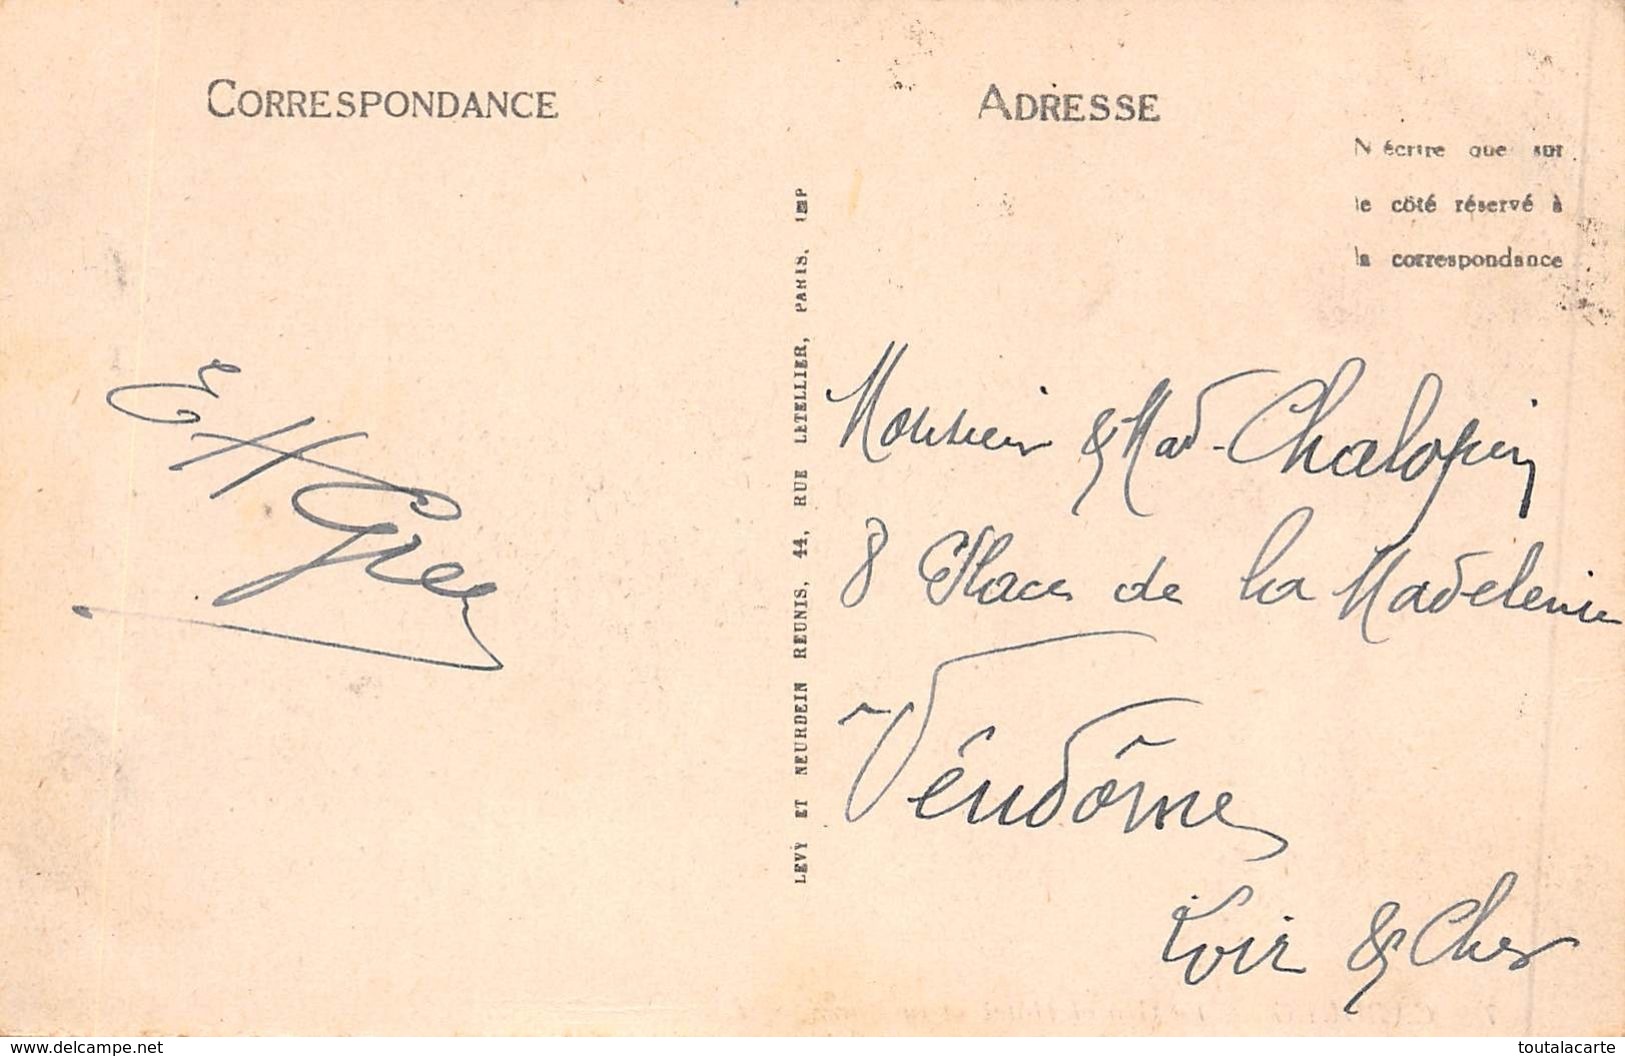 CORRESPONDANCE
E H
ADRESSE
N'écrire que sur
le côté réservé à
la correspondance
LEVY ET NEURDEIN REUNIS, 44, RUE LETELLIER, PARIS. IMP
Monsieur & Mad. Chalopin
8 Place de la Madeleine
Vendôme
Loir & Cher
www.delcampe.net
toutalacarte